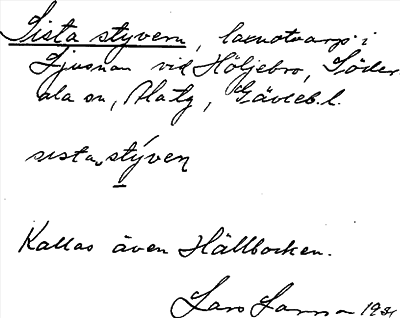 Sista styvern, laxnotvarp i
Ljusnan vid Höljebro, Söder-
ala sn, Platz, Gävleb. l.
sista stýven
Kallas även Hällbocken.
Lars Larsson 1931